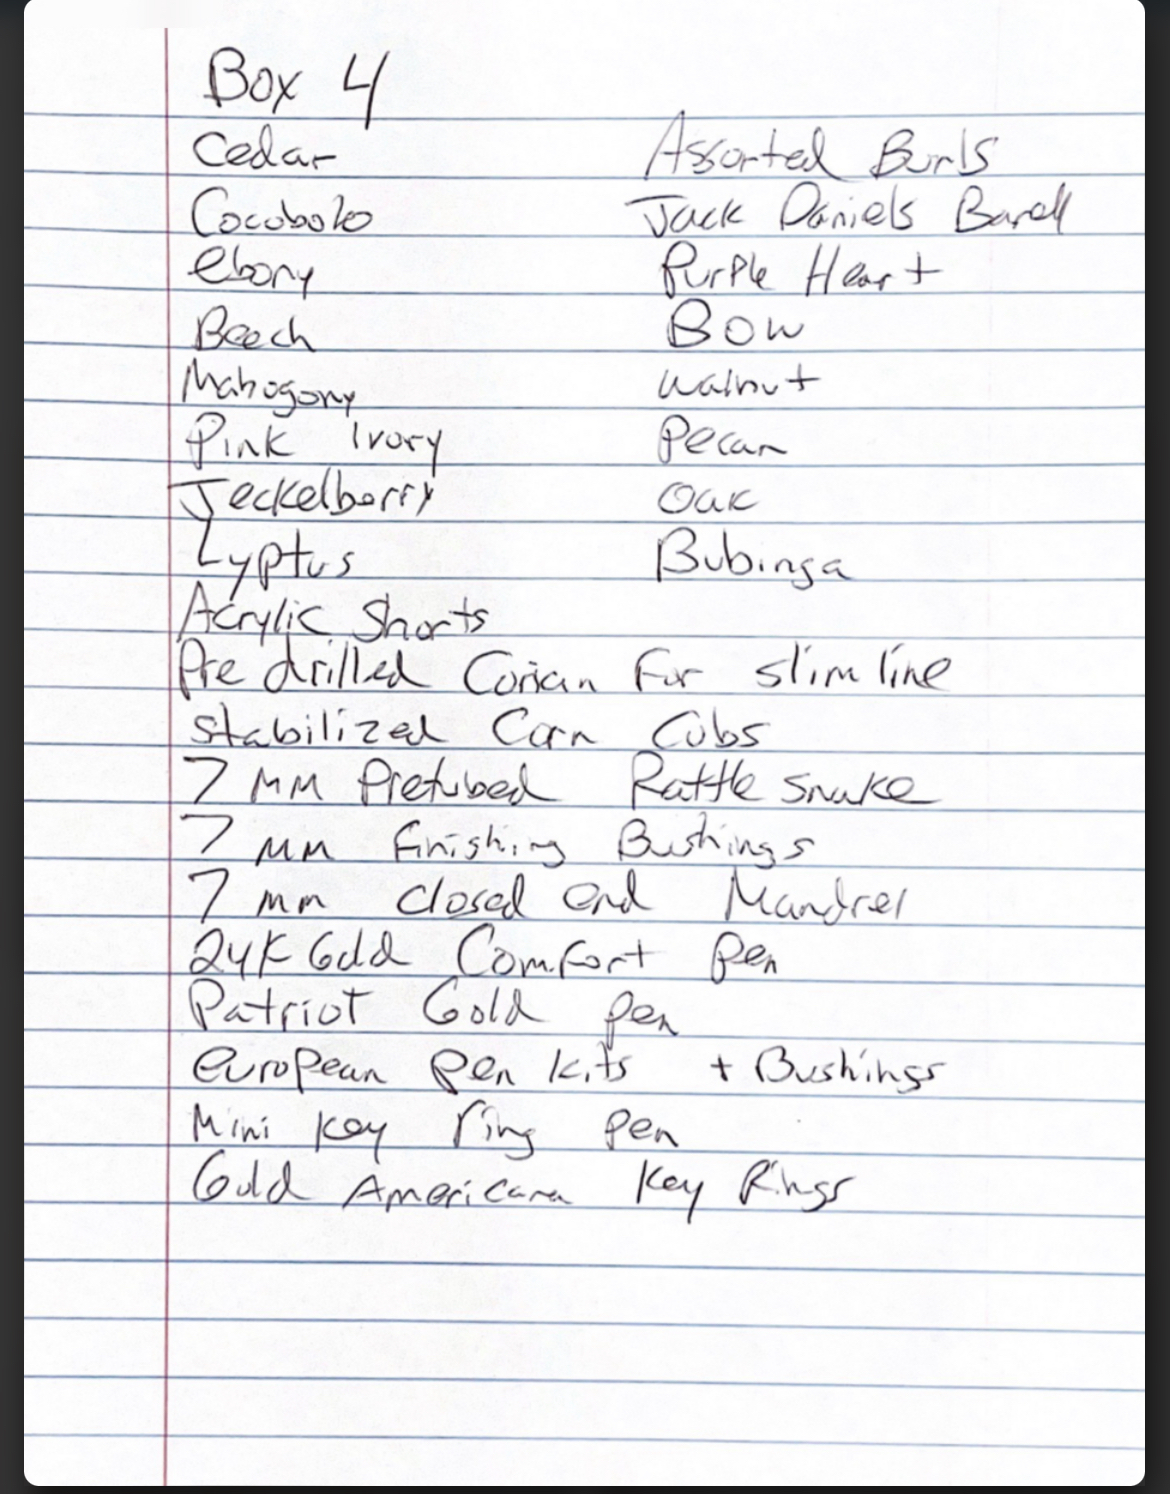 Box 4
Cedar Assorted Burls
Cocobolo Jack Daniels Barell
ebony Purple Heart
Beech Bow
Mahogony walnut
Pink Ivory Pecan
Jeckelberry Oak
Lyptus Bubinga
Acrylic Shorts
Pre drilled Corian For slim line
Stabilized Corn Cobs
7 MM Pretubed Rattle snake
7 MM finishing Bushings
7 mm closed end Mandrel
24K Gold Comfort Pen
Patriot Gold pen
european pen kits + Bushings
Mini key ring pen
Gold Americana Key Rings